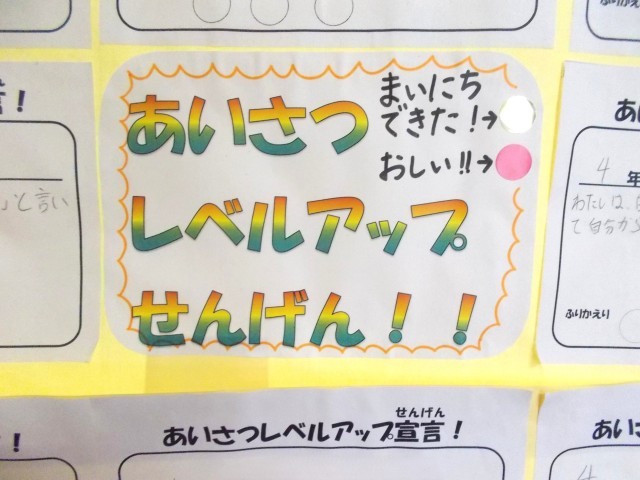 あいさつ
まいにち
できた！→
おしい!!→
レベルアップ
せんげん！！
言！
と言い
4 年
わたしは、
て自分から
ふりかえり
せんげん
あいさつレベルアップ宣言！
！
あいさ
4